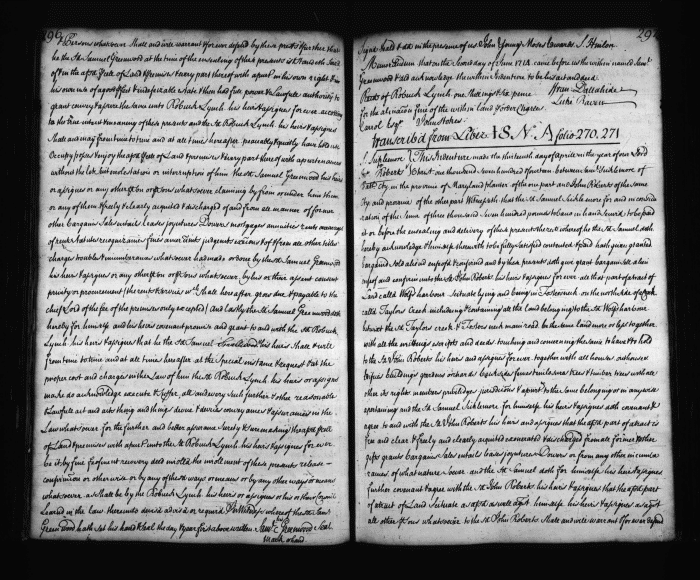 290
Persons whatsoever Shall and will warrant & forever defend by these pres:ts & further that
he the s:d Samuel Greenwood at the time of the ensealing of these presents is & stands Seized
of & in the afs:d p:cell of Land & premises & every part thereof with apurt:s in his own right &
his own use of a good p:fect & indefeazible Estate & then had full power & Lawfull authority to
grant convey & assure the same unto Robuck Lynch his heirs & assigns for ever according
to the true intent & meaning of these presents and the s:d Robuck Lynch his heirs & assigns
Shall and may from time to time and at all times hereafter peaceably & quietly have hold use
Occupy possess & enjoy the afs:d p:cell of Land & premises & every part thereof with appurtenances
without the let suit molestation or interruption of him the s:d Samuel Greenwood his heirs
or assigns or any other p:son or p:sons whatsoever claiming by from or under him them
or any of them & freely & clearly acquited & discharged of and from all manner of former
other bargains Sales entails leases joyntures Dowers mortgages annuities rents arrearages
of rents statutes recognizances fines amerciments judgments executions & of & from all other titles
charges troubles & incumbrances whatsoever had made or done by the s:d Samuel Greenwood
his heirs & assigns or any other p:son or p:sons whatsoever by his or their assent consent
privity or procurement (the rent & service w:ch Shall hereafter grow due & payable to the
Chief Lord of the fee of the premises only excepted) And lastly the s:d Samuel Greenwood doth
hereby for himself and his heirs covenant promise and grant to and with the s:d Robuck
Lynch his heirs & assigns that he the s:d Samuel Greenwood his heirs Shall & will
from time to time and at all times hereafter at the Special instance & request & at the
proper cost and charges in the Law of him the s:d Robuck Lynch his heirs or assigns
make do acknowledge execute & suffer all and every such further & other reasonable
& Lawfull act and acts thing and things devise & devices conveyances & assurances in the
Law whatsoever for the further and better assurance Surety & sure making the afs:d p:cell
of Land & premises with apurt:s unto the s:d Robuck Lynch his heirs & assigns for ever
be it by fine feofm:t recovery deed inrolled the inrollment of these presents release
confirmation or otherwise or by any of these ways or means or by any other ways or means
whatsoever as shall be by the Robuck Lynch his heirs or assigns or his or their Councill
Learned in the law thereunto devised advised or required In Witness whereof the s:d Sam:
Greenwood hath set his hand & seal the day & year first above written Sam:ll Greenwood Seal
mark
291
Signed Seal'd & d:d in the presence of us John Young Moses Edwards S. Hinton
Memorandum that on the Second day of June 1714 came before us the within named Sam:ll
Greenwood & did acknowledge the within Indenture to be his act and deed
Rec:d of Robuck Lynch one Shilling & Six pence
for the alienation fine of the within Land for
Carrol Esq:r John Stokes
Luke Raven
Transcrib'd from Liber I S. N:o A folio 270, 271
This Indenture made the thirteenth day of april in the year of our Lord
Roberts Christ one thousand seven hundred & fourteen between Sam:ll Sicklemore of
in the province of Maryland planter of the one part and John Roberts of the same
and province of the other part Witnesseth that the s:d Samuel Sicklemore for and in consider
ration of the Sume of three thousand seven hundred pounds tobacco in hand secured to be paid
at or before the ensealing and delivery of these presents the rec:t whereof he the s:d Samuel doth
hereby acknowledge & himself therewith to be fully satisfied contented & paid hath given granted
bargained sold aliened enfeof'd & confirmed and by these presents doth give grant bargain sell alien
enfeof and confirm unto the s:d John Roberts his heirs & assigns for ever all that part of a tract of
Land called Wolf harbour Situate lying and being in on the north side of a creek
called Taylors Creek including & containing all the land belonging to the s:d Wolf harbour
betwixt the s:d Taylors creek & main road be the same land more or less together
with all the writings scripts and deeds touching and concerning the same to have & to hold
to the s:d John Roberts his heirs and assigns for ever together with all houses outhouses
edifices buildings gardens orchards fences timber trees & timber trees with all
other its rights members priviledges jurisdictions & apurt:s to the same belonging or in anywise
appertaining and the s:d Samuel Sicklemore for himself his heirs & assigns doth covenant &
agree to and with the s:d John Roberts his heirs and assigns that the afs:d part of a tract is
free and clear & freely and clearly acquited exonerated & discharged from all former & other
gifts grants bargains Sales entails leases joyntures Dowers or from any other incumb
rances of what nature soever and the s:d Samuel doth for himself & his heirs & assigns
further covenant & agree with the s:d John Roberts his heirs & assigns that the afs:d part
of a tract of Land Situate as afs:d as well ag:st himself his heirs & assigns as ag:st
all other p:sons whatsoever to the s:d John Roberts Shall and will warrant & forever defend